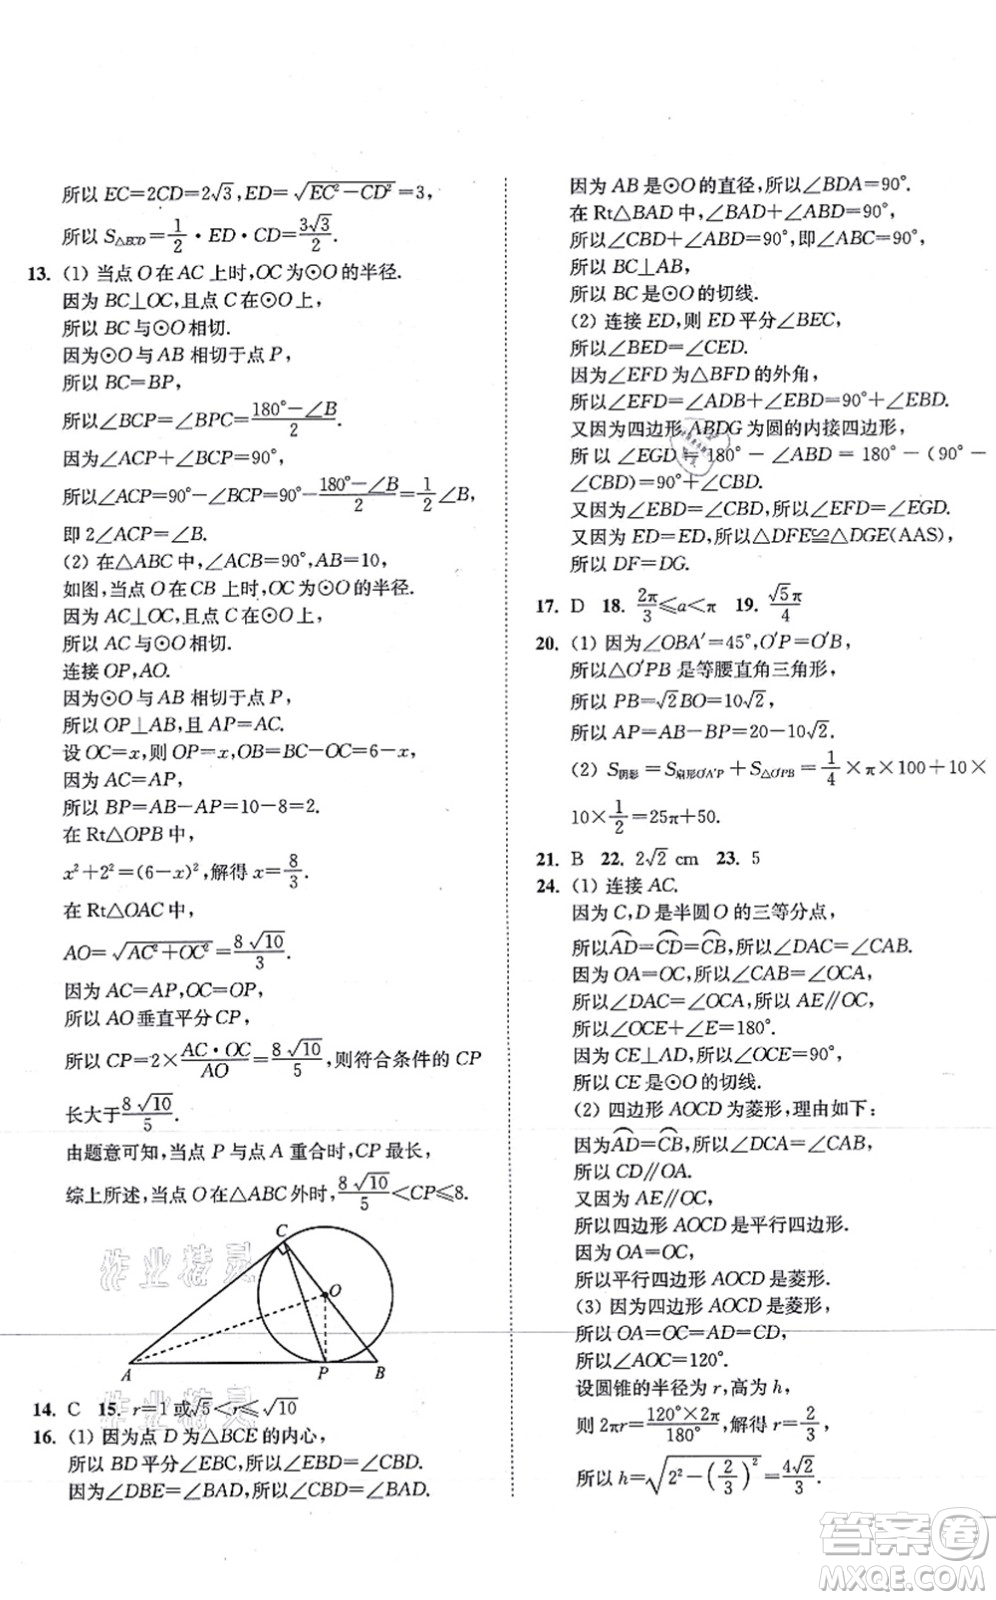 所以 EC=2CD=2√3,ED=√(EC²-CD²)=3,
所以 S△ECD=1/2·ED·CD=3√3/2.
13. (1) 当点 O 在 AC 上时,OC 为⊙O 的半径.
因为 BC⊥OC,且点 C 在⊙O 上,
所以 BC 与⊙O 相切.
因为⊙O 与 AB 相切于点 P,
所以 BC=BP,
所以∠BCP=∠BPC=(180°-∠B)/2.
因为∠ACP+∠BCP=90°,
所以∠ACP=90°-∠BCP=90°-(180°-∠B)/2=1/2∠B,
即 2∠ACP=∠B.
(2) 在△ABC 中,∠ACB=90°,AB=10,
如图,当点 O 在 CB 上时,OC 为⊙O 的半径.
因为 AC⊥OC,且点 C 在⊙O 上,
所以 AC 与⊙O 相切.
连接 OP,AO.
因为⊙O 与 AB 相切于点 P,
所以 OP⊥AB,且 AP=AC.
设 OC=x,则 OP=x,OB=BC-OC=6-x,
因为 AC=AP,
所以 BP=AB-AP=10-8=2.
在 Rt△OPB 中,
x²+2²=(6-x)²,解得 x=8/3.
在 Rt△OAC 中,
AO=√(AC²+OC²)=8√10/3.
因为 AC=AP,OC=OP,
所以 AO 垂直平分 CP,
所以 CP=2×(AC·OC)/AO=8√10/5,则符合条件的 CP
长大于8√10/5.
由题意可知,当点 P 与点 A 重合时,CP 最长,
综上所述,当点 O 在△ABC 外时,8√10/5<CP≤8.
C
O
A
P
B
作业精灵
作业精灵
14. C 15. r=1 或√5<r≤√10
16. (1) 因为点 D 为△BCE 的内心,
所以 BD 平分∠EBC,所以∠EBD=∠CBD.
因为∠DBE=∠BAD,所以∠CBD=∠BAD.
因为 AB 是⊙O 的直径,所以∠BDA=90°.
在 Rt△BAD 中,∠BAD+∠ABD=90°,
所以∠CBD+∠ABD=90°,即∠ABC=90°,
所以 BC⊥AB,
所以 BC 是⊙O 的切线.
(2) 连接 ED,则 ED 平分∠BEC,
所以∠BED=∠CED.
因为∠EFD 为△BFD 的外角,
所以∠EFD=∠ADB+∠EBD=90°+∠EBD.
又因为四边形 ABDG 为圆的内接四边形,
所以 ∠EGD = 180° - ∠ABD = 180° - (90° -
∠CBD)=90°+∠CBD.
又因为∠EBD=∠CBD,所以∠EFD=∠EGD.
又因为 ED=ED,所以△DFE≌△DGE(AAS),
所以 DF=DG.
17. D 18. 2π/3≤a<π 19. √5π/4
20. (1) 因为∠OBA′=45°,O′P=O′B,
所以△O′PB 是等腰直角三角形,
所以 PB=√2BO=10√2,
所以 AP=AB-BP=20-10√2.
(2) S阴影=S扇形O′A′P+S△O′PB=1/4×π×100+10×
10×1/2=25π+50.
21. B 22. 2√2 cm 23. 5
24. (1) 连接 AC.
因为 C,D 是半圆 O 的三等分点,
所以⌒AD=⌒CD=⌒CB,所以∠DAC=∠CAB.
因为 OA=OC,所以∠CAB=∠OCA,
所以∠DAC=∠OCA,所以 AE∥OC,
所以∠OCE+∠E=180°.
因为 CE⊥AD,所以∠OCE=90°,
所以 CE 是⊙O 的切线.
(2) 四边形 AOCD 为菱形,理由如下:
因为⌒AD=⌒CB,所以∠DCA=∠CAB,
所以 CD∥OA.
又因为 AE∥OC,
所以四边形 AOCD 是平行四边形.
因为 OA=OC,
所以平行四边形 AOCD 是菱形.
(3) 因为四边形 AOCD 是菱形,
所以 OA=OC=AD=CD,
所以∠AOC=120°.
设圆锥的半径为 r,高为 h,
则 2πr=(120°×2π)/180°,解得 r=2/3,
所以 h=√(2²-(2/3)²)=4√2/3.
答案圈
MXQE.COM